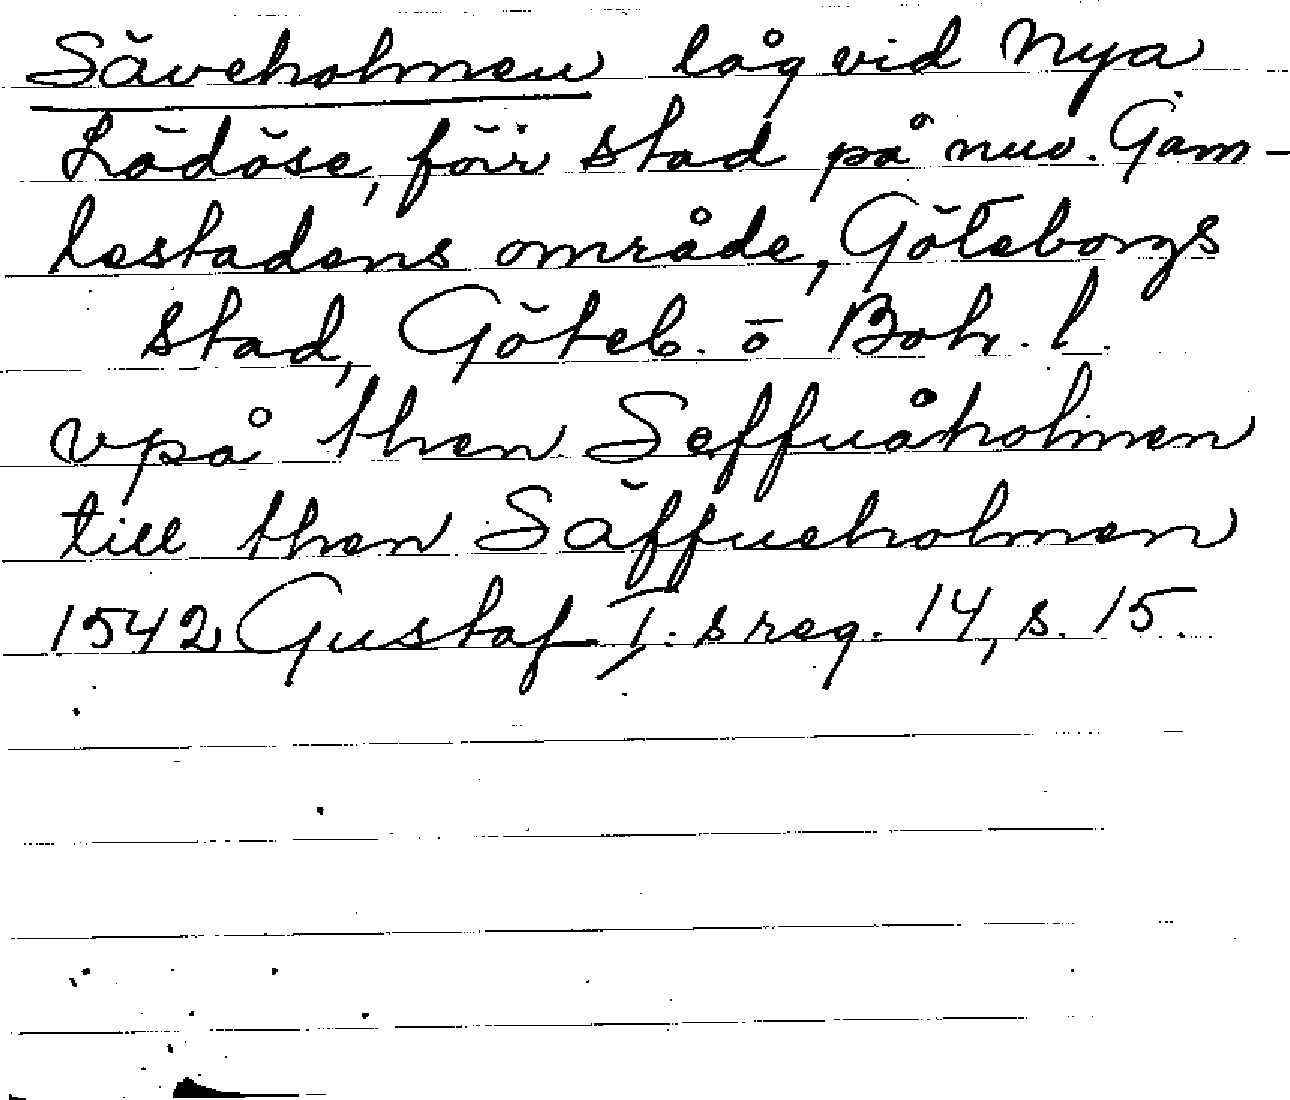 Säveholmen låg vid Nya
Lödöse, förr stad på nuv. Gam-
lestadens område, Göteborgs
stad, Göteb. o Boh. l.
vpå then Seffuåholmen
till then Säffueholmen
1542 Gustaf I:s reg. 14, s. 15.